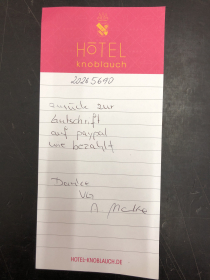 HOTEL
knoblauch
20265690
zurück zur
Gutschrift
auf paypal
wie bezahlt
Danke
VG
HOTEL-KNOBLAUCH.DE